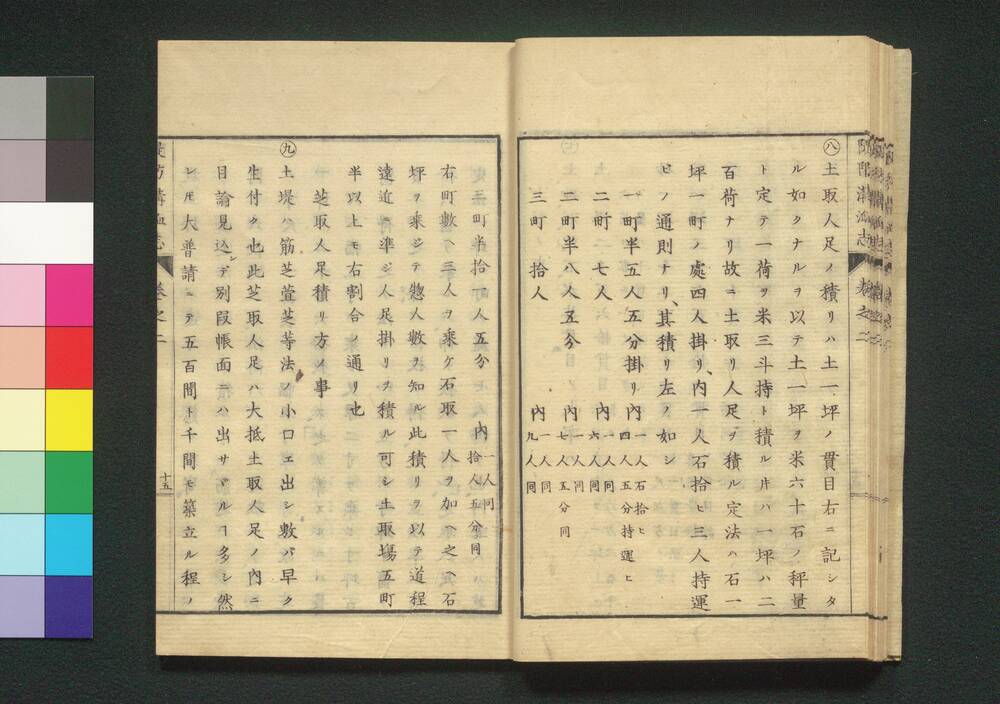 ㊇土取人足ノ積リハ土一坪ノ貫目右ニ記シタ
ル如クナルヲ以テ土一坪ヲ米六十石ノ秤量
ト定テ一荷ヲ米三斗持ト積ル片ハ一坪ハ二
百荷ナリ故ニ土取リ人足ヲ積ル定法ハ石一
坪一町ノ處四人掛リ、内一人石拾ヒ三人持運
ヒノ通則ナリ、其積リ左ノ如シ
一町半五人五分掛リ 內 一人石拾ヒ 四人五分持運ヒ
二町 七人 內 一人同 六人同
二町半八人五分 內 一人同 七人五分同
三町 拾人 內 一人同 九人同
三町半拾一人五分 內 一人同 拾人五分同
右町數ヘ三人ヲ乘ケ石取一人ヲ加ヘ之ヘ石
坪ヲ乘シテ惣人數ヲ知ル此積リヲ以テ道程
遠近ニ準ジ人足掛リヲ積ル可シ土取塲五町
半以上モ右割合ノ通リ也
芝取人足積リ方ノ事
㊈土堤ハ筋芝萱芝等法ノ小口エ出シ數バ早ク
生付ク也此芝取人足ハ大抵土取人足ノ內ニ
目論見込ンデ別段帳面ニハ出サヾルヿ多シ然
シ𪜈大普請ニテ五百間ト千間モ築立ル程ノ
卷之二
十五